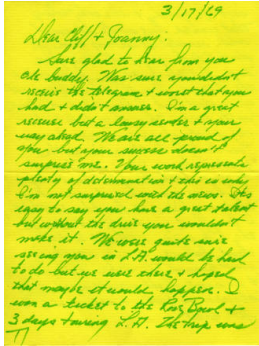 3/17/69
Dear Cliff & Joanny.
Sure glad to hear from you
ole buddy. Was sure you didn't
receive the telegram & worst that you
had & didn't answer. I'm a great
receiver but a lousey sender & your
way ahead. We are all proud of
you but your success doesn't
surprise me. Your work represents
plenty of determination & this is why
I'm not surprised with the news. Its
easy to say you have a great talent
but without the drive you wouldn't
make it. We were quite sure
seeing you in L.A. would be hard
to do but we were there & hoped
that maybe it would happen. I
won a ticket to the Rose Bowl &
3 days touring L.A. The trip was